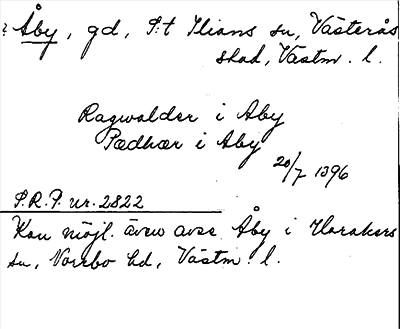 ? Åby, gd, S:t Ilians sn, Västerås
stad, Västm. l.
Ragwalder i Aby
Pædhær i Aby
20/7 1396
S.R.P. nr. 2822
Kan möjl. även avse Åby i Harakers
sn, Norrbo hd, Västm. l.